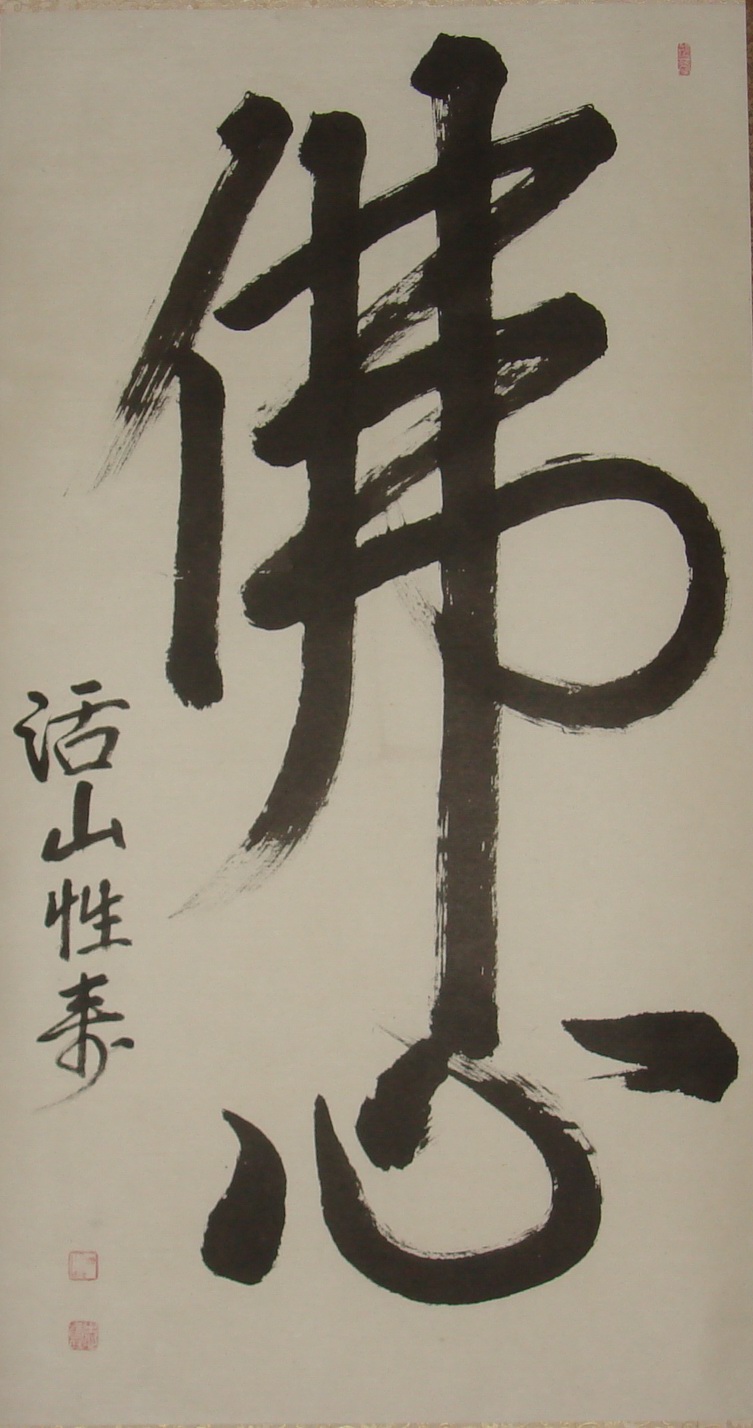 佛心
活山性寿